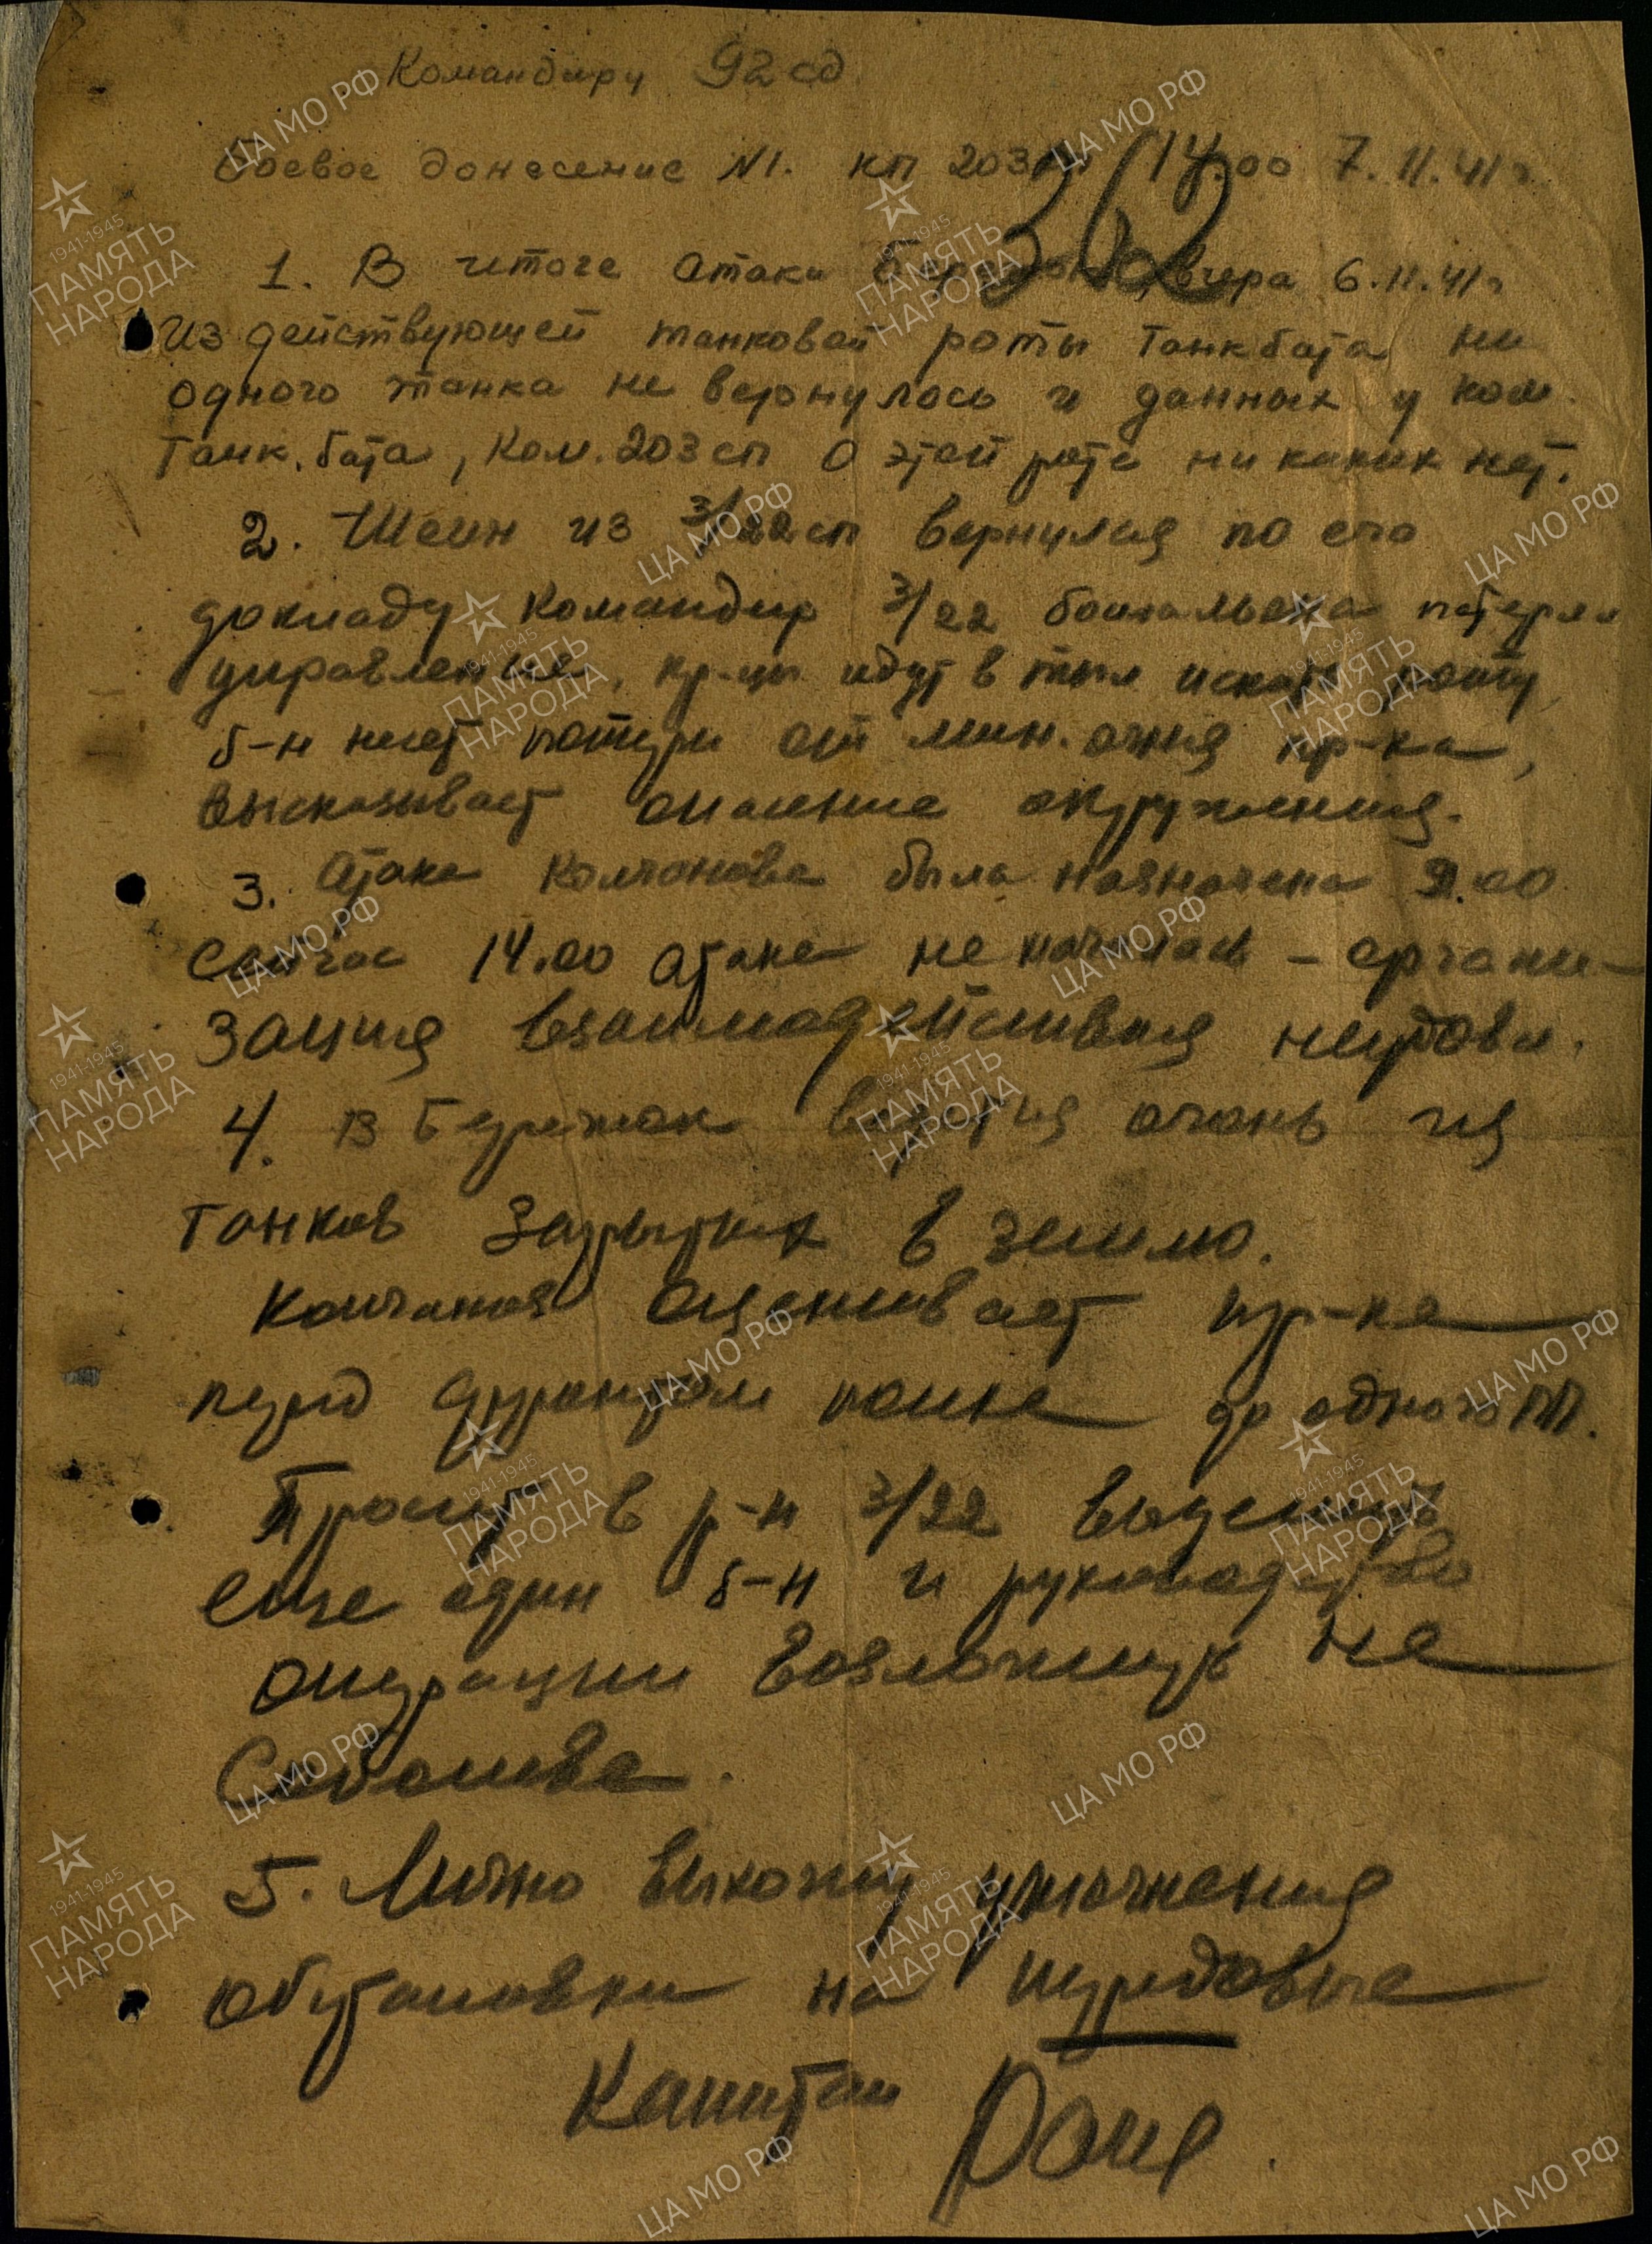 Командиру 92 сд.
Боевое донесение N1. КП 203 сп 14.00 7.11.41 г
362
1. В итоге атаки вчера 6.11.41 г
из действующей танковой роты танкбата ни
одного танка не вернулось и данных у ком.
танк.бата, ком. 203 сп о этой роте ни каких нет.
2. Шеин из 3/22 сп вернулся по его
докладу командир 3/22 потерял
управление, кр-цы идут в тыл искать роту,
б-н несет потери от мин. огня пр-ка,
высказывает опасение окружения.
3. Атака Колчанова была назначена 9.00
сейчас 14.00 атака не началась - органи-
зация взаимодействия не готова.
4. В Бережок ведется огонь из
танков зарытых в землю.
Колчанов оценивает пр-ка
перед фронтом полка до одного ПП.
Прошу в р-н 3/22 выделить
еще один б-н и руководство
операции возложить на
5. Лично выхожу уточнения
обстановки на передовые
Капитан
ЦА МО РФ
1941-1945
ПАМЯТЬ
НАРОДА